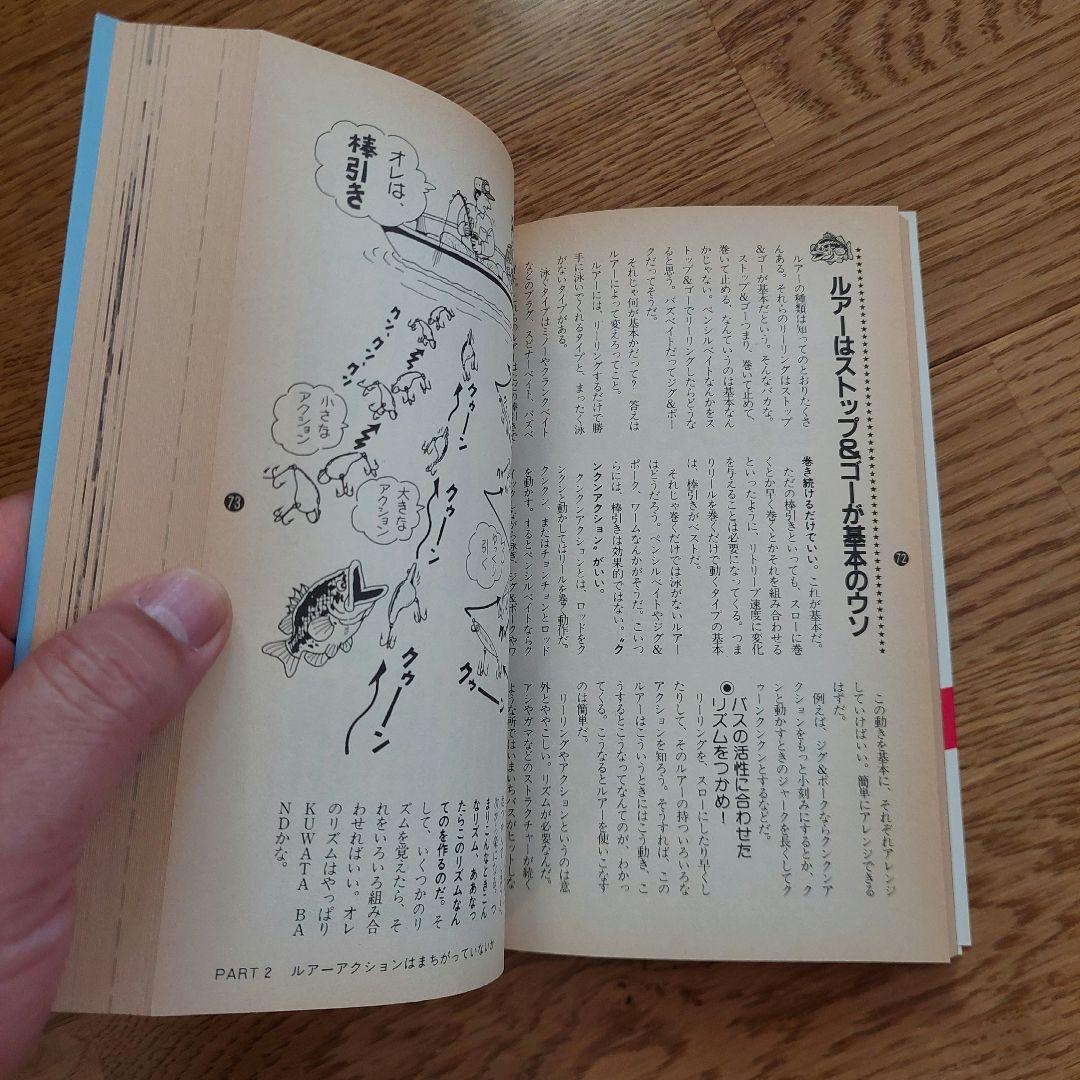 ルアーはストップ&ゴーが基本のウソ
ルアーの種類は知ってのとおりたくさ
んある。それらのリーリングはストップ
&ゴーが基本だという。そんなバカな。
ストップ&ゴーつまり、巻いて止めて、
巻いて止める、なんていうのは基本なん
かじゃない。ペンシルベイトなんかをス
トップ&ゴーでリーリングしたらどうな
ると思う。バズベイトだってジグ&ポー
クだってそうだ。
それじゃ何が基本かだって? 答えは
ルアーによって変えろってこと。
ルアーには、リーリングするだけで勝
手に泳いでくれるタイプと、まったく泳
がないタイプがある。
泳ぐタイプはミノーやクランクベイト
などのプラグ、スピナーベイト、バズベ
巻き続けるだけでいい。これが基本だ。
ただの棒引きといっても、スローに巻
くとか早く巻くとかそれを組み合わせる
といったように、リトリーブ速度に変化
を与えることは必要になってくる。つま
りリールを巻くだけで動くタイプの基本
は、棒引きがベストだ。
それじゃ巻くだけでは泳がないルアー
はどうだろう。ペンシルベイトやジグ&
ポーク、ワームなんかがそうだ。こいつ
らには、棒引きは効果的ではない。“ク
ンクンアクション”がいい。
クンクンアクションとは、ロッドをク
ンクンと動かしてはリールを巻く動作だ。
クンクン、またはチョンチョンとロッド
を動かす。するとペンシルベイトならク
この動きを基本に、それぞれアレンジ
していけばいい。簡単にアレンジできる
はずだ。
例えば、ジグ&ポークならクンクンア
クションをもっと小刻みにするとか、ク
ンと動かすときのジャークを長くしてク
ゥーンクンクンとするなどだ。
●バスの活性に合わせた
リズムをつかめ!
リーリングを、スローにしたり早くし
たりして、そのルアーの持ついろいろな
アクションを知ろう。そうすれば、この
ルアーはこういうときにはこう動き、こ
うするとこうなってなんてのが、わかっ
てくる。こうなるとルアーを使いこなす
のは簡単だ。
リーリングやアクションというのは意
外とややこしい。リズムが必要なんだ。
アシやガマなどのストラクチャーが続く
ような所ではいまいちバスがヒットしな
72
オレは、
棒引き
クン、クンクン
小さな
アクション
大きな
アクション
クゥーン
クゥーン
クゥーン
クゥーン
引く
まりこんなときこん
なリズム、ああなっ
たらこのリズムなん
てのを作るのだ。そ
して、いくつかのリ
ズムを覚えたら、そ
れをいろいろ組み合
わせればいい。オレ
のリズムはやっぱり
KUWATA BA
NDかな。
73
PART 2 ルアーアクションはまちがっていないか